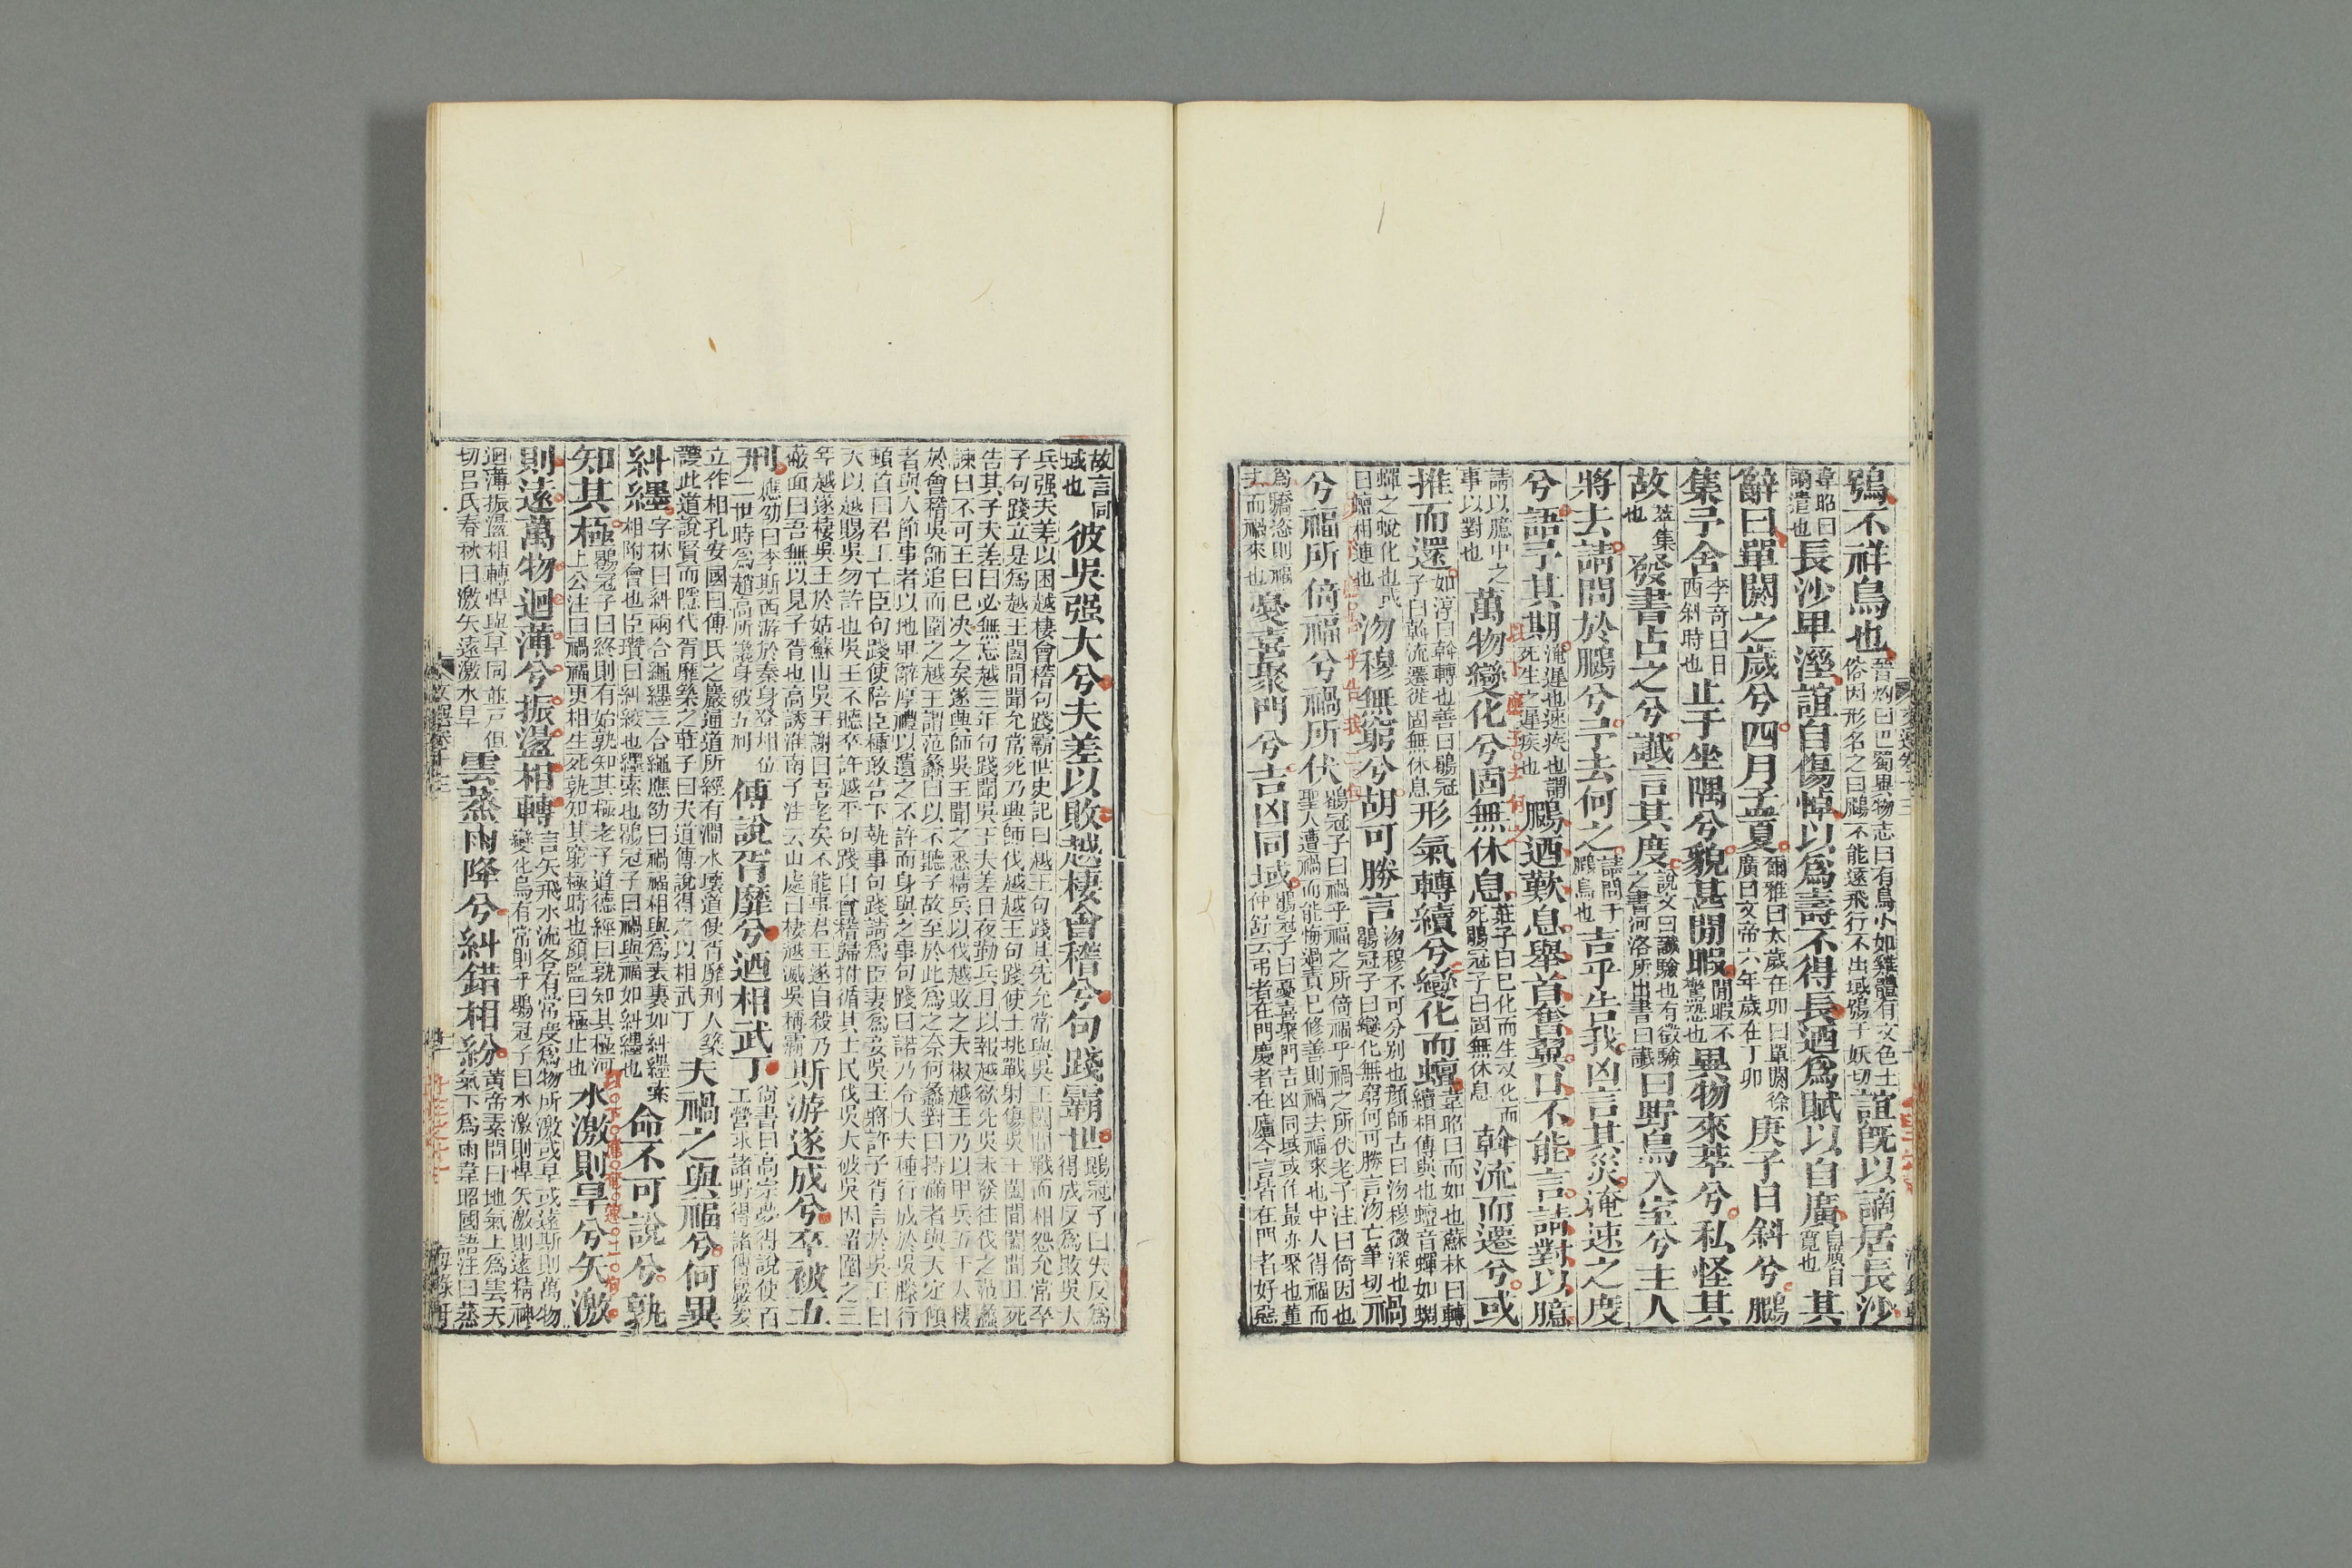 鴞不祥鳥也晉灼曰巴蜀異物志曰有鳥小如雞體有文色土俗因形名之曰鵩不能遠飛行不出域鴞于妖切誼旣以謫居長沙
韋昭曰謫遣也長沙卑溼誼自傷悼以爲壽不得長迺爲賦以自廣自廣自寬也其
辭曰單閼之歲兮四月孟夏爾雅曰太歲在卯曰單閼徐廣曰文帝六年歲在丁卯庚子日斜兮鵩
集予舍李奇曰日西斜時也止于坐隅兮貌甚閒暇閒暇不驚恐也異物來萃兮私怪其
故萃集也發書占之兮讖言其度說文曰讖驗也有徵驗之書河洛所出書曰讖曰野鳥入室兮主人
將去請問於鵩兮予去何之請問于鵩鳥也吉乎告我凶言其災淹速之度
兮語予其期淹遲也速疾也謂死生之遲疾也鵩迺歎息舉首奮翼口不能言請對以臆
請以臆中之事以對也萬物變化兮固無休息莊子曰已化而生又化而死鶡冠子曰固無休息斡流而遷兮或
推而還如淳曰斡轉也善曰鶡冠子曰斡流遷徙固無休息形氣轉續兮變化而蟺韋昭曰而如也蘇林曰轉續相傳與也蟺音蟬如蜩
蟬之蛻化也或曰蟺相連也沕穆無窮兮胡可勝言沕穆不可分別也顔師古曰沕穆微深也鶡冠子曰變化無窮何可勝言沕亡筆切禍
兮福所倚福兮禍所伏鶡冠子曰禍乎福之所倚福乎禍之所伏老子注曰倚因也聖人遭禍而能悔過責已修善則禍去福來也中人得福而
爲驕恣則福去而禍來也憂喜聚門兮吉凶同域鶡冠子曰憂喜聚門吉凶同域或作最亦聚也董仲舒云弔者在門慶者在廬今言皆在門者好惡
故言同域也彼吳强大兮夫差以敗越棲會稽兮句踐霸世鶡冠子曰失反爲得成反爲敗吳大
兵强夫差以困越棲會稽句踐霸世史記曰越王句踐其先允常與吳王闔閭戰而相怨允常卒
子句踐立是爲越王闔閭聞允常死乃興師伐越越王句踐使士挑戰射傷吳王闔閭闔閭且死
告其子夫差曰必無忘越三年句踐聞吳王夫差日夜勤兵且以報越欲先吳未發往伐之范蠡
諫曰不可王曰已決之矣遂興師吳王聞之悉精兵以伐越敗之夫椒越王乃以甲兵五千人棲
於會稽吳師追而圍之越王謂范蠡曰以不聽子故至於此爲之奈何蠡對曰持滿者與天定傾
者與人節事者以地卑辭厚禮以遺之不許而身與之事句踐曰諾乃令大夫種行成於吳膝行
頓首曰君王亡臣句踐使陪臣種敢告下執事句踐請爲臣妻爲妾吳王將許子胥言於吳王曰
天以越賜吳勿許也吳王不聽卒許越平句踐自會稽歸拊循其士民伐吳大破吳因留圍之三
年越遂棲吳王於姑蘇山吳王謝曰吾老矣不能事君王遂自殺乃蔽面曰吾無以見子胥也高誘淮南子注云山處曰棲越滅吳稱霸斯游遂成兮卒被五
刑應劭曰李斯西游於秦身登相位二世時爲趙高所讒身被五刑傅說胥靡兮迺相武丁尙書曰高宗夢得說使百工營求諸野得諸傅巖爰
立作相孔安國曰傅氏之巖通道所經有澗水壞道使胥靡刑人築護此道說賢而隱代胥靡築之莊子曰夫道傅說得之以相武丁夫禍之與福兮何異
糾纆字林曰糾兩合繩纆三合繩應劭曰禍福相與爲表裏如糾纆索相附會也臣瓚曰糾絞也纆索也鶡冠子曰禍與福如糾纆也命不可說兮孰
知其極鶡冠子曰終則有始孰知其極老子道德經曰孰知其極河上公注曰禍福更相生死孰知其窮極時也顔監曰極止也水激則旱兮矢激
則遠萬物迴薄兮振盪相轉言矢飛水流各有常度爲物所激或旱或遠斯則萬物變化烏有常則乎鶡冠子曰水激則悍矢激則遠精神
迴薄振盪相轉悍與旱同並戸但切呂氏春秋曰激矢遠激水旱雲蒸雨降兮糾錯相紛黃帝素問曰地氣上爲雲天氣下爲雨韋昭國語注曰蒸